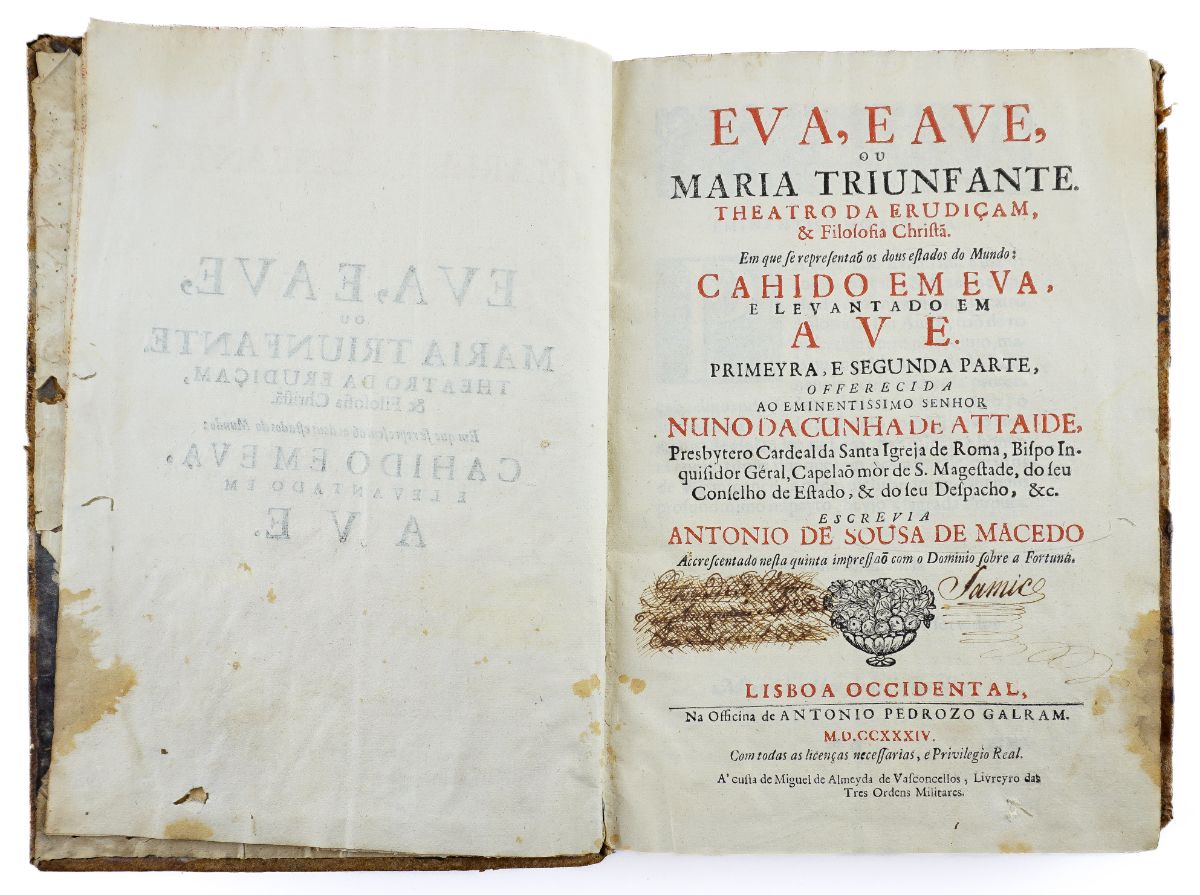 EVA, E AVE,
OU
MARIA TRIUNFANTE.
THEATRO DA ERUDIÇAM,
& Filoſofia Chriſtã.
Em que ſe repreſentaõ os dous eſtados do Mundo:
CAHIDO EM EVA,
E LEVANTADO EM
A V E.
PRIMEYRA, E SEGUNDA PARTE,
OFFERECIDA
AO EMINENTISSIMO SENHOR
NUNO DA CUNHA DE ATTAIDE,
Presbytero Cardeal da Santa Igreja de Roma, Biſpo In-
quiſidor Géral, Capelaõ mòr de S. Mageſtade, do ſeu
Conſelho de Eſtado, & do ſeu Deſpacho, &c.
ESCREVIA
ANTONIO DE SOUSA DE MACEDO
Accreſcentado neſta quinta impreſſaõ com o Dominio ſobre a Fortuna.
LISBOA OCCIDENTAL,
Na Officina de ANTONIO PEDROZO GALRAM.
M.D.CCXXXIV.
Com todas as licenças neceſſarias, e Privilegio Real.
A' cuſta de Miguel de Almeyda de Vaſconcellos, Livreyro das
Tres Ordens Militares.